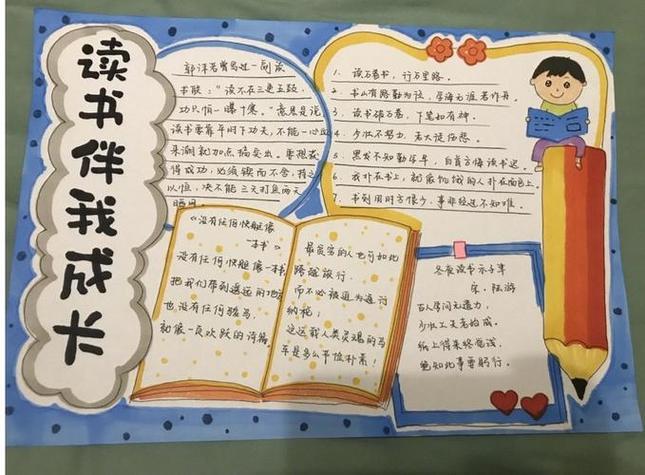 读书伴我成长
郭沫若曾写过一副读
书联："读不在三更五鼓，
功只怕一曝十寒。"意思是说，
读书要靠平时下功夫，不能一心血
来潮就加点猛突击。要想获
得成功，必须锲而不舍，持之
以恒，决不能三天打鱼两天
晒网。
1. 读万卷书，行万里路。
2. 书山有路勤为径，学海无涯苦作舟。
3. 读书破万卷，下笔如有神。
4. 少壮不努力，老大徒伤悲。
5. 黑发不知勤学早，白首方悔读书迟。
6. 我扑在书上，就像饥饿的人扑在面包上。
7. 书到用时方恨少，事非经过不知难。
《没有任何快艇像
一本书》
没有任何快艇像一本书
把我们带到遥远的地方
也没有任何骏马
初像一页欢跃的诗篇
最贫穷的人也可如此
跨越旅行，
而不必被迫为通行
纳税；
这运载人类灵魂的马
车是多么节俭朴素！
冬夜读书示子聿
宋·陆游
古人学问无遗力，
少壮工夫老始成。
纸上得来终觉浅，
绝知此事要躬行。